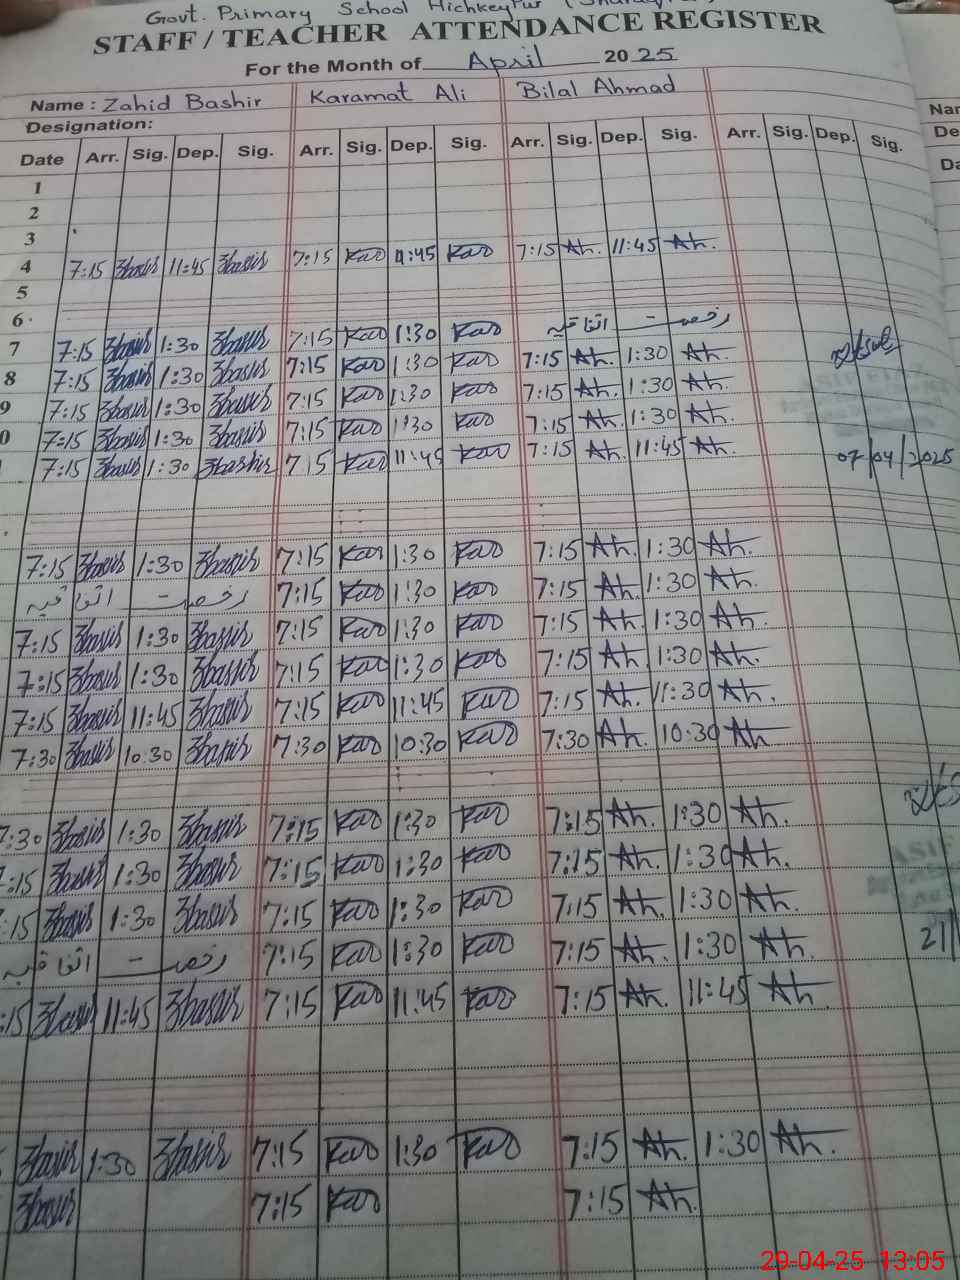 Govt. Primary School Hichkeypur
STAFF / TEACHER ATTENDANCE REGISTER
For the Month of April 2025
Name : Zahid Bashir Karamat Ali Bilal Ahmad
Designation:
Date Arr. Sig. Dep. Sig. Arr. Sig. Dep. Sig. Arr. Sig. Dep. Sig. Arr. Sig. Dep. Sig.
1
2
3
4 7:15 Zbashir 11:45 Zbashir 7:15 Kar 11:45 Kar 7:15 Ah. 11:45 Ah.
5
6
7 7:15 Zbashir 1:30 Zbashir 7:15 Kar 1:30 Kar رخصت اتفاقیہ
8 7:15 Zbashir 1:30 Zbashir 7:15 Kar 1:30 Kar 7:15 Ah. 1:30 Ah.
9 7:15 Zbashir 1:30 Zbashir 7:15 Kar 1:30 Kar 7:15 Ah. 1:30 Ah.
0 7:15 Zbashir 1:30 Zbashir 7:15 Kar 1:30 Kar 7:15 Ah. 1:30 Ah.
7:15 Zbashir 1:30 Zbashir 7:15 Kar 11:45 Kar 7:15 Ah. 11:45 Ah. 07/04/2025
7:15 Zbashir 1:30 Zbashir 7:15 Kar 1:30 Kar 7:15 Ah. 1:30 Ah.
رخصت اتفاقیہ 7:15 Kar 1:30 Kar 7:15 Ah. 1:30 Ah.
7:15 Zbashir 1:30 Zbashir 7:15 Kar 1:30 Kar 7:15 Ah. 1:30 Ah.
7:15 Zbashir 1:30 Zbashir 7:15 Kar 1:30 Kar 7:15 Ah. 1:30 Ah.
7:15 Zbashir 11:45 Zbashir 7:15 Kar 11:45 Kar 7:15 Ah. 11:30 Ah.
7:30 Zbashir 10:30 Zbashir 7:30 Kar 10:30 Kar 7:30 Ah. 10:30 Ah
7:30 Zbashir 1:30 Zbashir 7:15 Kar 1:30 Kar 7:15 Ah. 1:30 Ah.
:15 Zbashir 1:30 Zbashir 7:15 Kar 1:30 Kar 7:15 Ah. 1:30 Ah. ASIF
:15 Zbashir 1:30 Zbashir 7:15 Kar 1:30 Kar 7:15 Ah. 1:30 Ah. 21/
رخصت اتفاقیہ 7:15 Kar 1:30 Kar 7:15 Ah. 1:30 Ah.
:15 Zbashir 11:45 Zbashir 7:15 Kar 11:45 Kar 7:15 Ah. 11:45 Ah.
Zbashir 1:30 Zbashir 7:15 Kar 1:30 Kar 7:15 Ah. 1:30 Ah.
Zbashir 7:15 Kar 7:15 Ah.
29-04-25 13:05